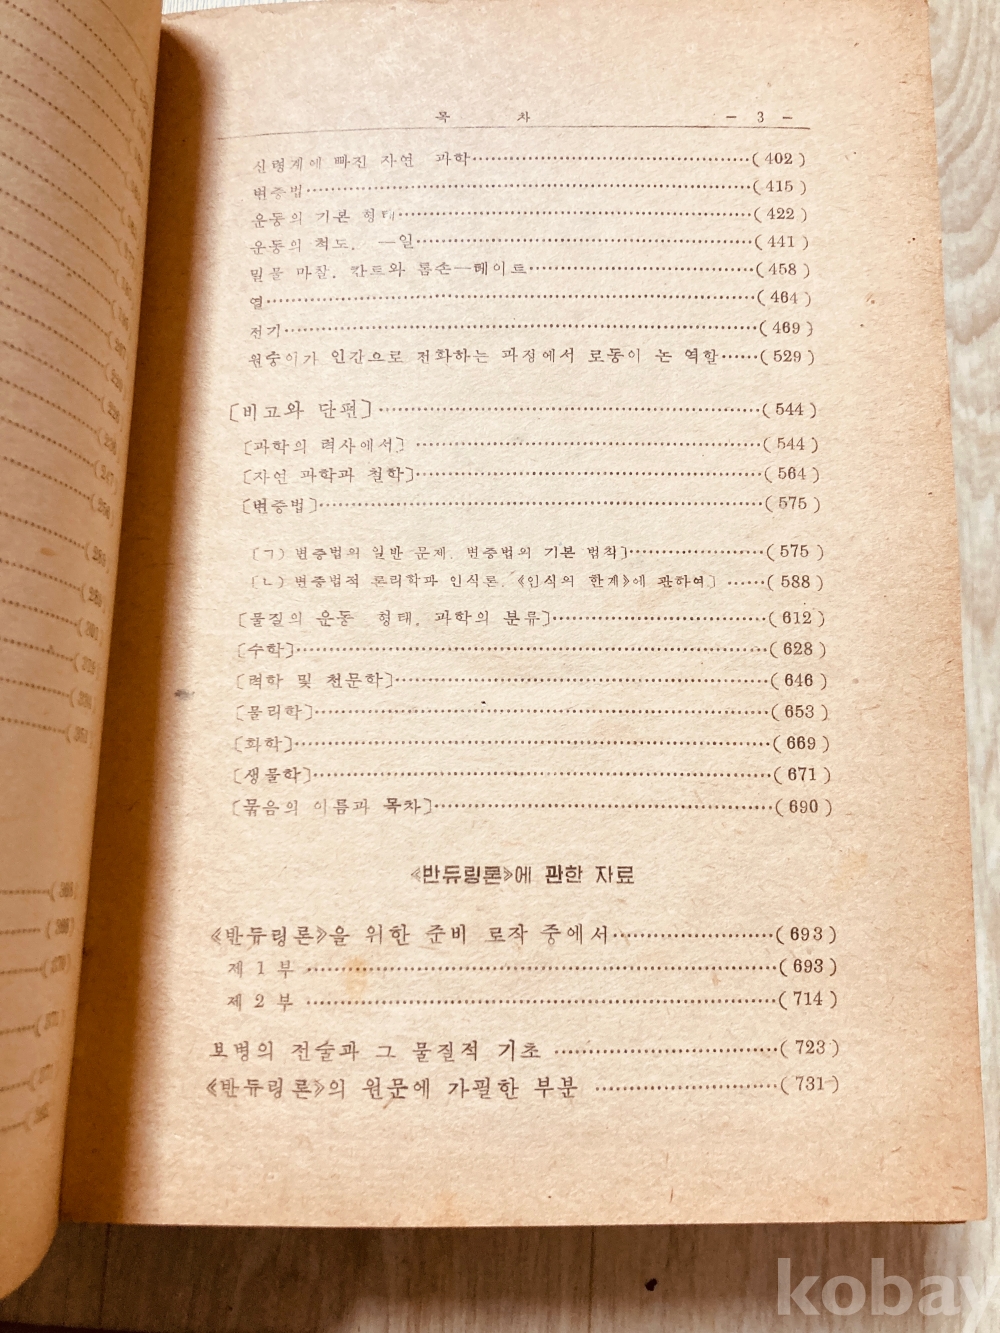 목 차 — 3 —
신령계에 빠진 자연 과학……(402)
변증법……(415)
운동의 기본 형태……(422)
운동의 척도. —일……(441)
밀물 마찰. 칸트와 톰손—테이트……(458)
열……(464)
전기……(469)
원숭이가 인간으로 전화하는 과정에서 로동이 논 역할……(529)
〔비고와 단편〕……(544)
〔과학의 력사에서〕……(544)
〔자연 과학과 철학〕……(564)
〔변증법〕……(575)
〔ㄱ) 변증법의 일반 문제. 변증법의 기본 법칙〕……(575)
〔ㄴ) 변증법적 론리학과 인식론. 《인식의 한계》에 관하여〕……(588)
〔물질의 운동 형태. 과학의 분류〕……(612)
〔수학〕……(628)
〔력학 및 천문학〕……(646)
〔물리학〕……(653)
〔화학〕……(669)
〔생물학〕……(671)
〔묶음의 이름과 목차〕……(690)
《반듀링론》에 관한 자료
《반듀링론》을 위한 준비 로작 중에서……(693)
제 1 부……(693)
제 2 부……(714)
보병의 전술과 그 물질적 기초……(723)
《반듀링론》의 원문에 가필한 부분……(731)
kobay